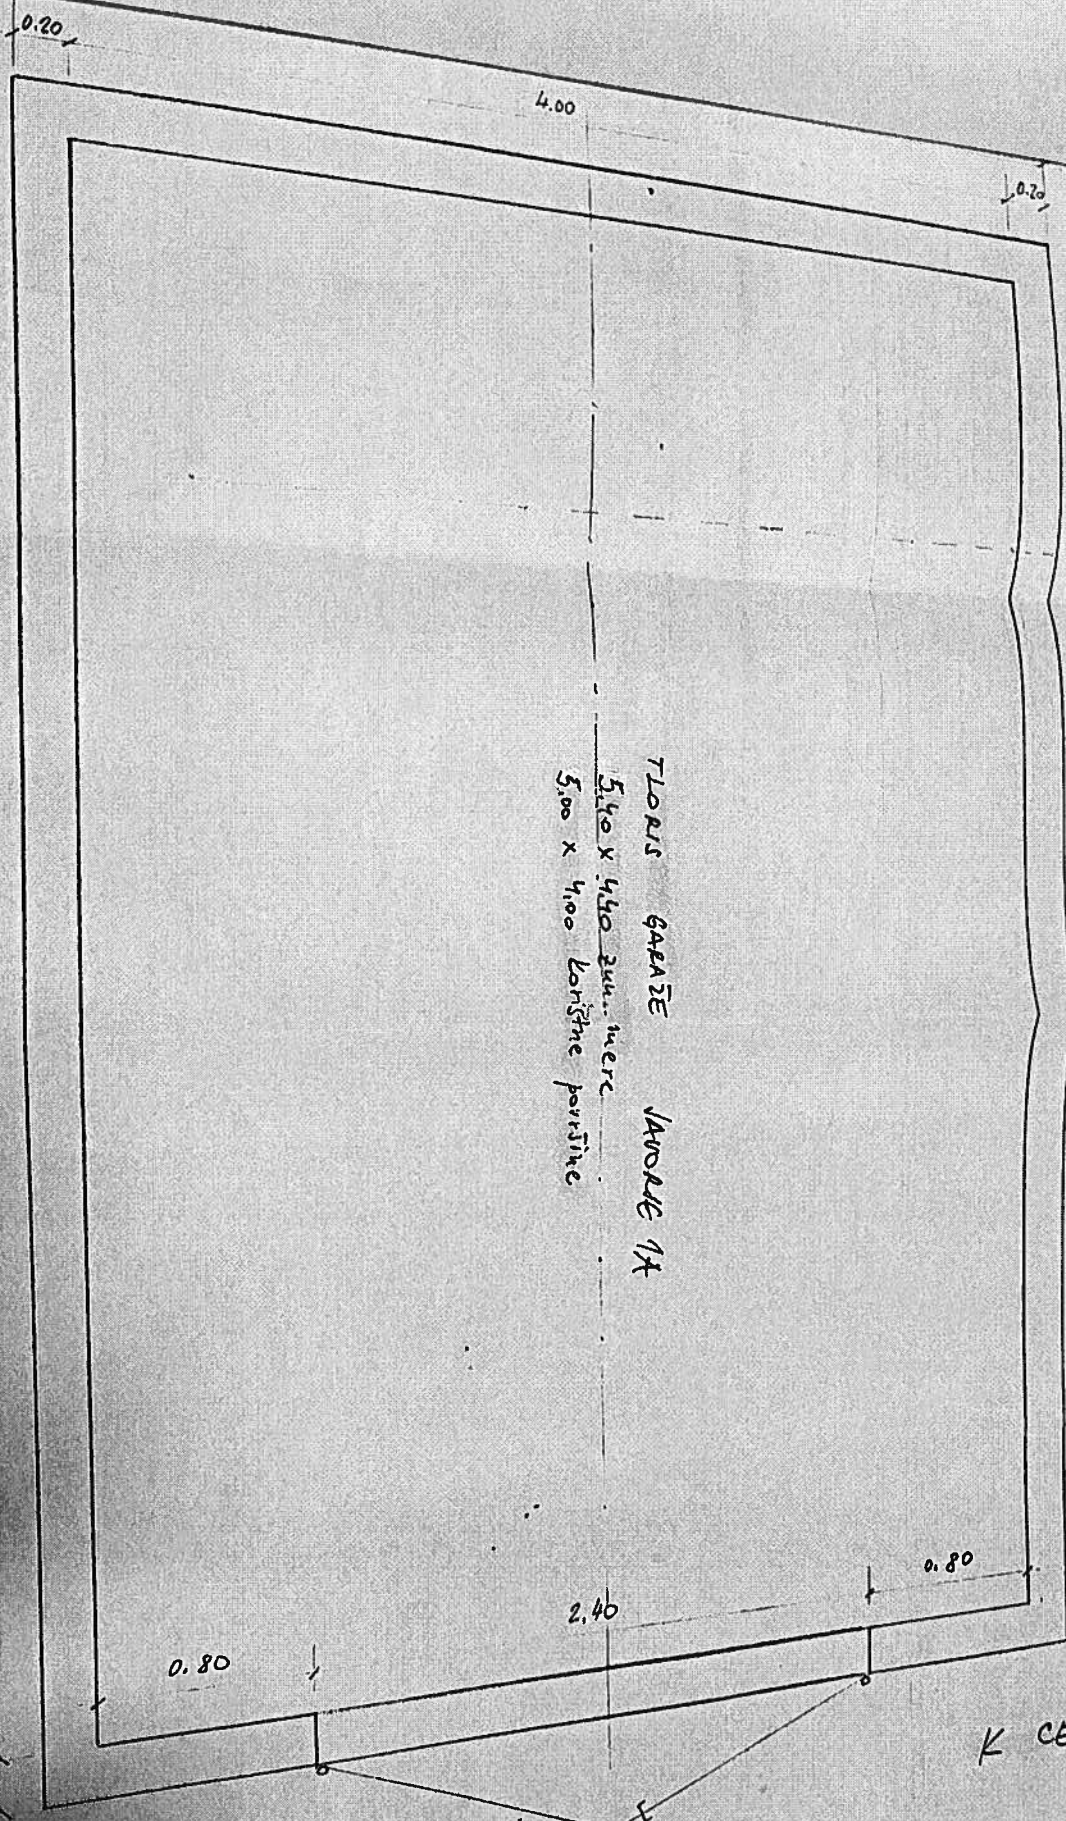 0.20
4.00
0.20
TLORIS GARAŽE JAVORJE 1A
5,40 x 4,40 zun. mere
5,00 x 4,00 koristne površine
0.80
2.40
0.80
K